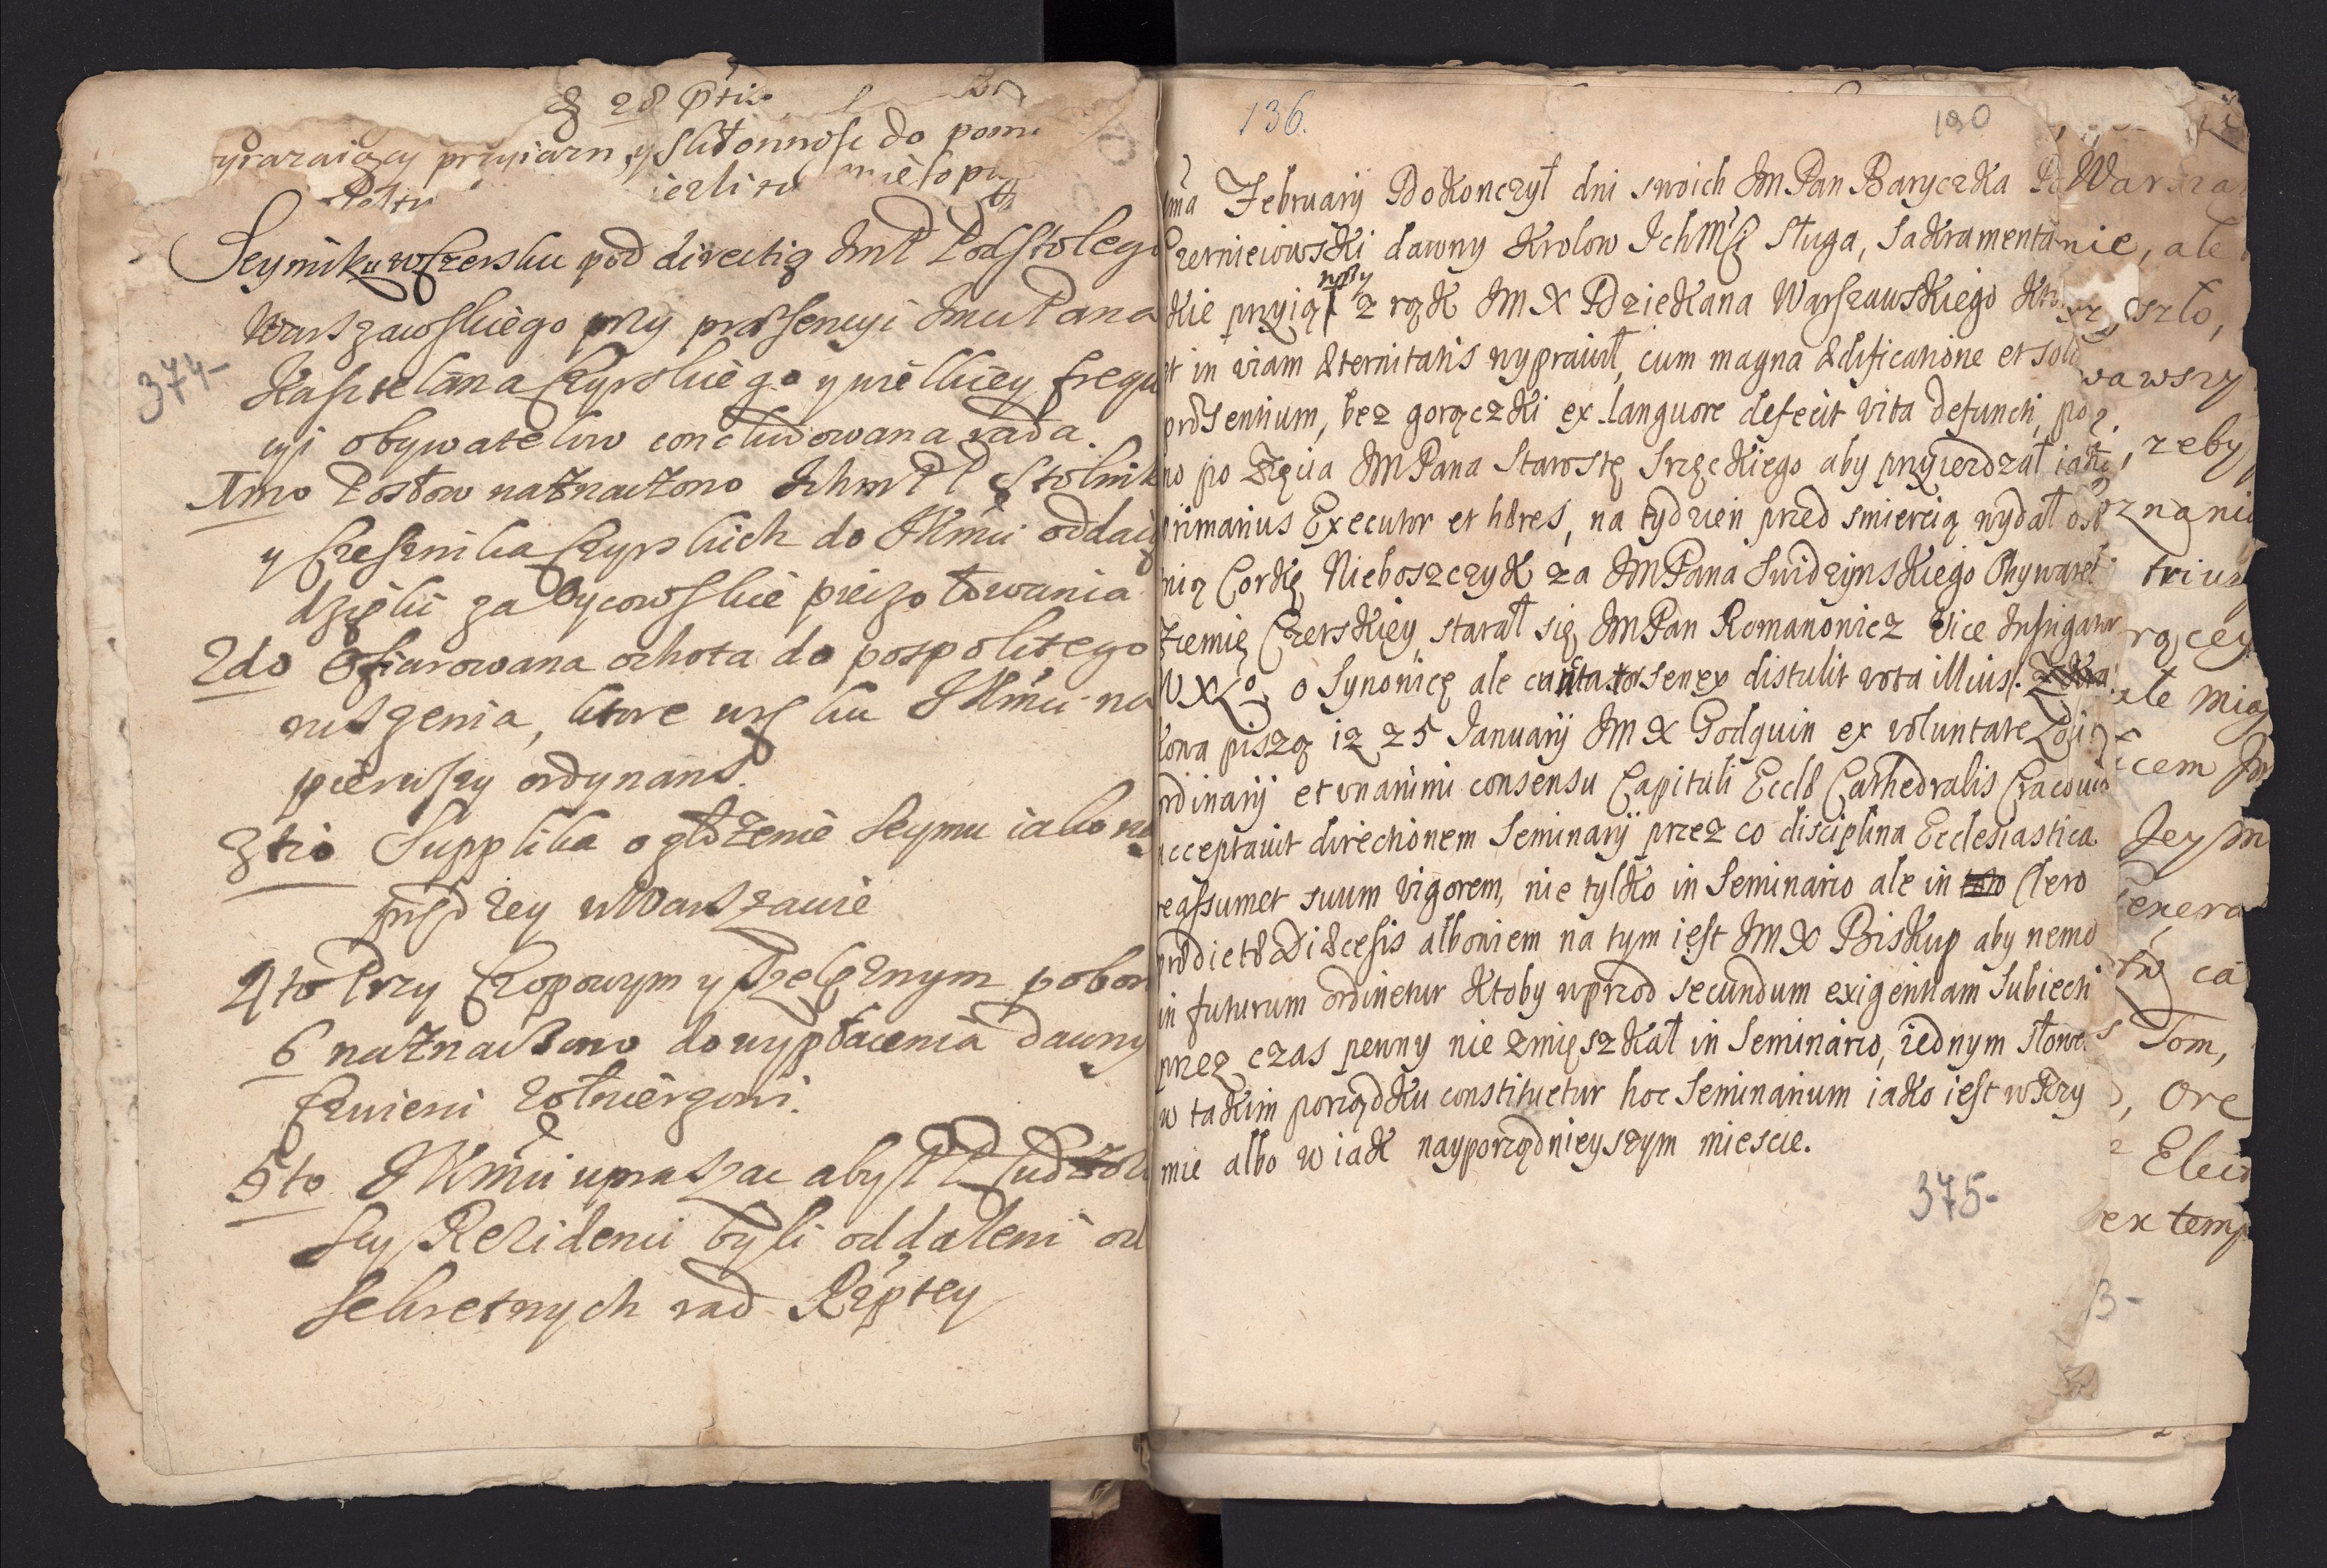 28 ptis
yrazaiący przyiazn, y skłonnosc do pom
iezli
Seymiku w Czersku pod directią Jm P Podstolego
Warszawskiego przy præsencyi Jmci Pana
Kasztelana Czyrskiego y wielkiey frequ
cyi obywatelow concludowana rada.
1mo Posłow naznaczono Ichm PP Stolnik
y Czesznika Czyrskich do JKmci oddaią
dzięki za Oycowskie pieczołowania
2do Ofiarowana ochota do pospolitego
ruszenia, ktore wsku JKmci na
pierwszy ordynans.
3tio Supplika o złożenie Seymu iako na
prędzey w Warszawie
4to Przy Czopowym y Szelężnym pobor
6 naznaczono do wypłacenia dawny
Cwierci żołnierzowi.
5to JKmci upraszac aby PP Cudzozie
scy Rezidenci byli oddaleni od
sekretnych rad Rzptey
374-
136.
190
ma February Dokonczył dni swoich JM Pan Baryczka P
Czerniciowski dawny Krolow IchMsci Sługa, Sakramenta
kie przyiął z rąk JM X Dziekana Warszawskiego kto
et in viam æternitatis wyprawił, cum magna ædificatione et sola
præsentium, bez gorączki ex languore defecit vita defuncti, po
no po Zięcia JM Pana Starostę Srzęckiego aby przyiezdzał iako
primarius Executor et hæres, na tydzien przed smiercią wydał ost
nią Corkę Nieboszczyk za JM Pana Swidzynskiego Obywatel
Ziemię Czerskiey, starał się JM Pan Romanowicz Vice Instigator
WXLo, o Synowicę ale cunctator senex distulit vota illius.
kowa piszą iz 25 January JM X Godquin ex voluntate Loci
ordinarij et unanimi consensu Capituli Ecclæ Cathedralis Cracovien
acceptavit directionem Seminarij przez co disciplina Ecclesiastica
reassumet suum vigorem, nie tylko in Seminario ale in toto Clero
prædictæ Diæcesis albowiem na tym iest JM X Biskup aby nemo
in futurum ordinetur ktoby wprzod secundum exigentiam Subiecti
przez czas pewny nie zmięszkał in Seminario, iednym słowe
w takim porządku constituetur hoc Seminarium iako iest w Rzy
mie albo w iak nayporządnieyszym miescie.
375-
Warsza
nie, ale
szło,
wawszy
, zeby
znani
trium
rącey
ale mia
cem
Jey
ca
Tom,
, Ore
ex temp